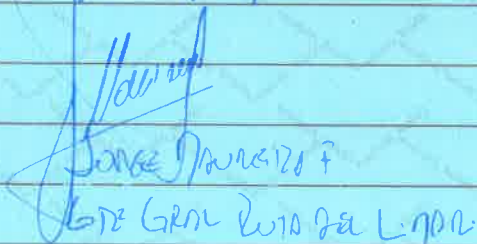 JORGE MAUREIRA F
GTE GRAL RUTA DEL L. MAR.